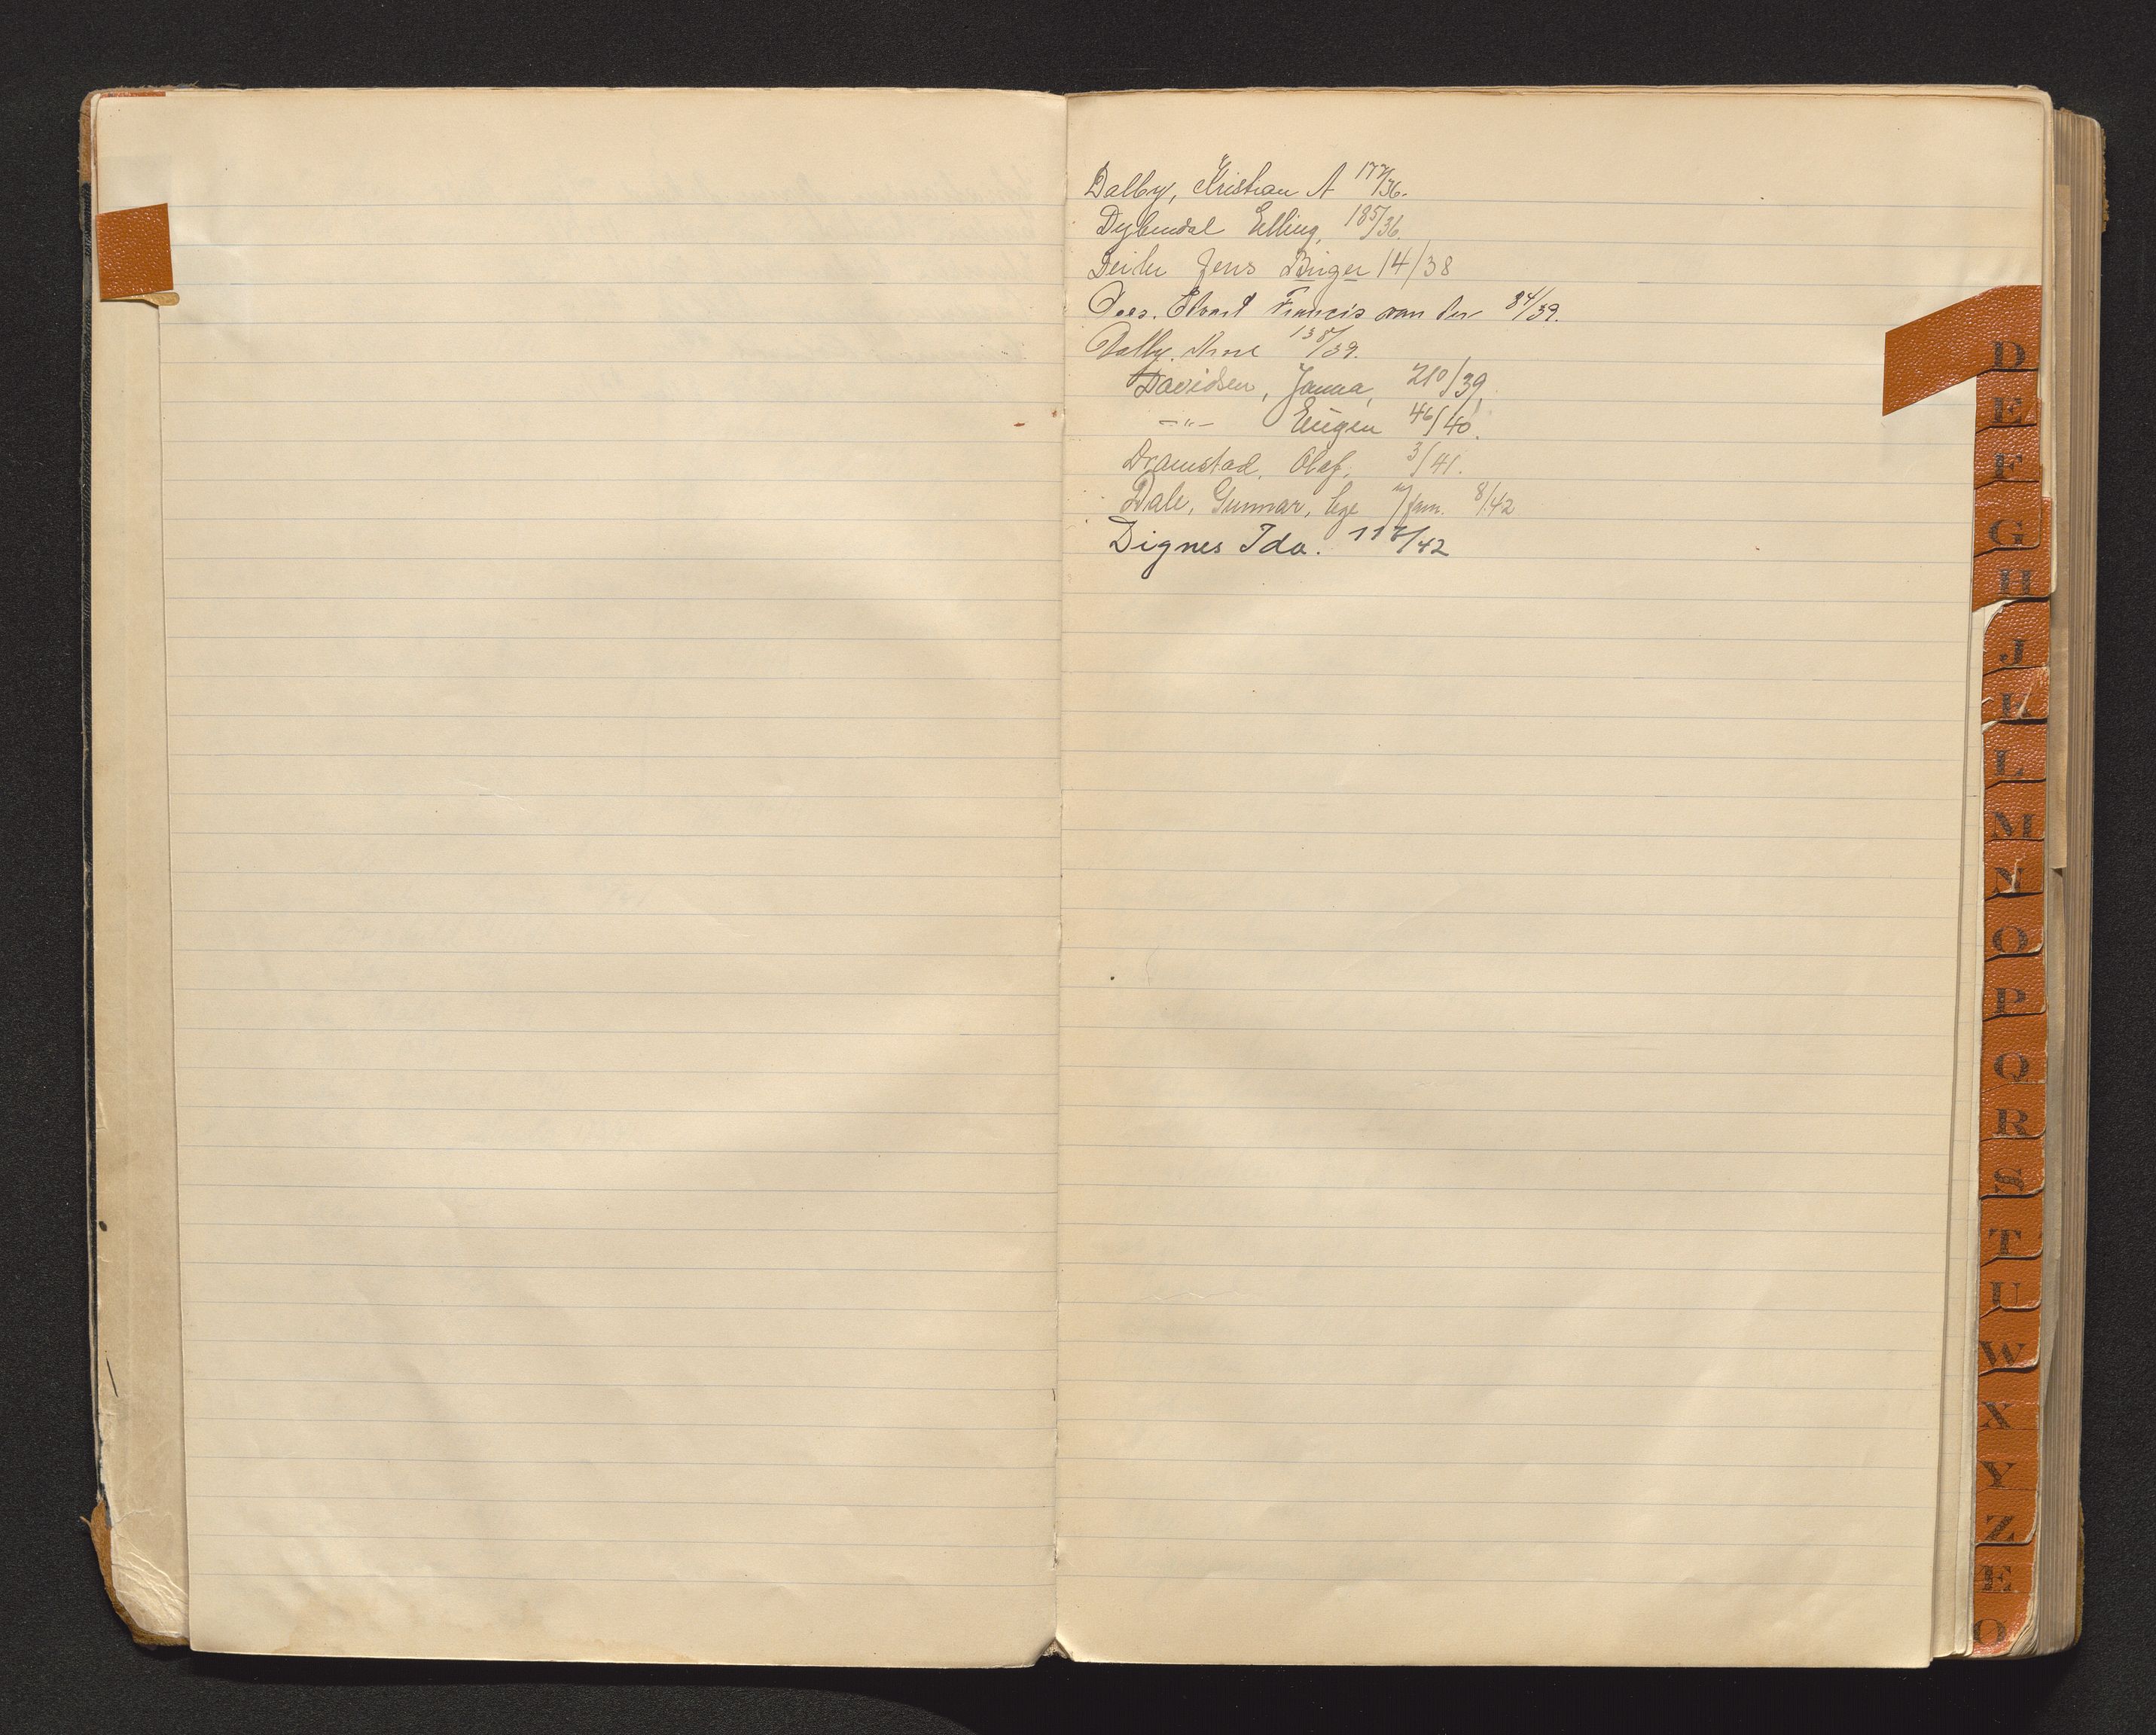 Dalby, Kristian A 177/36.
Dybendal Elling, 185/36.
Jens Birger 14/38
Does. Edvart Francis van der 84/39.
Dalby. Arne 138/39.
Davidsen, Janna, 210/39,
-"- Eugen 46/40.
Dramstad, Olaf, 3/41.
Dale, Gunnar, lege m/fam. 8/42
Dignes Ida. 117/42
D
E
F
G
H
J
K
L
M
N
O
P
Q
R
S
T
U
W
X
Y
Z
Æ
Ø